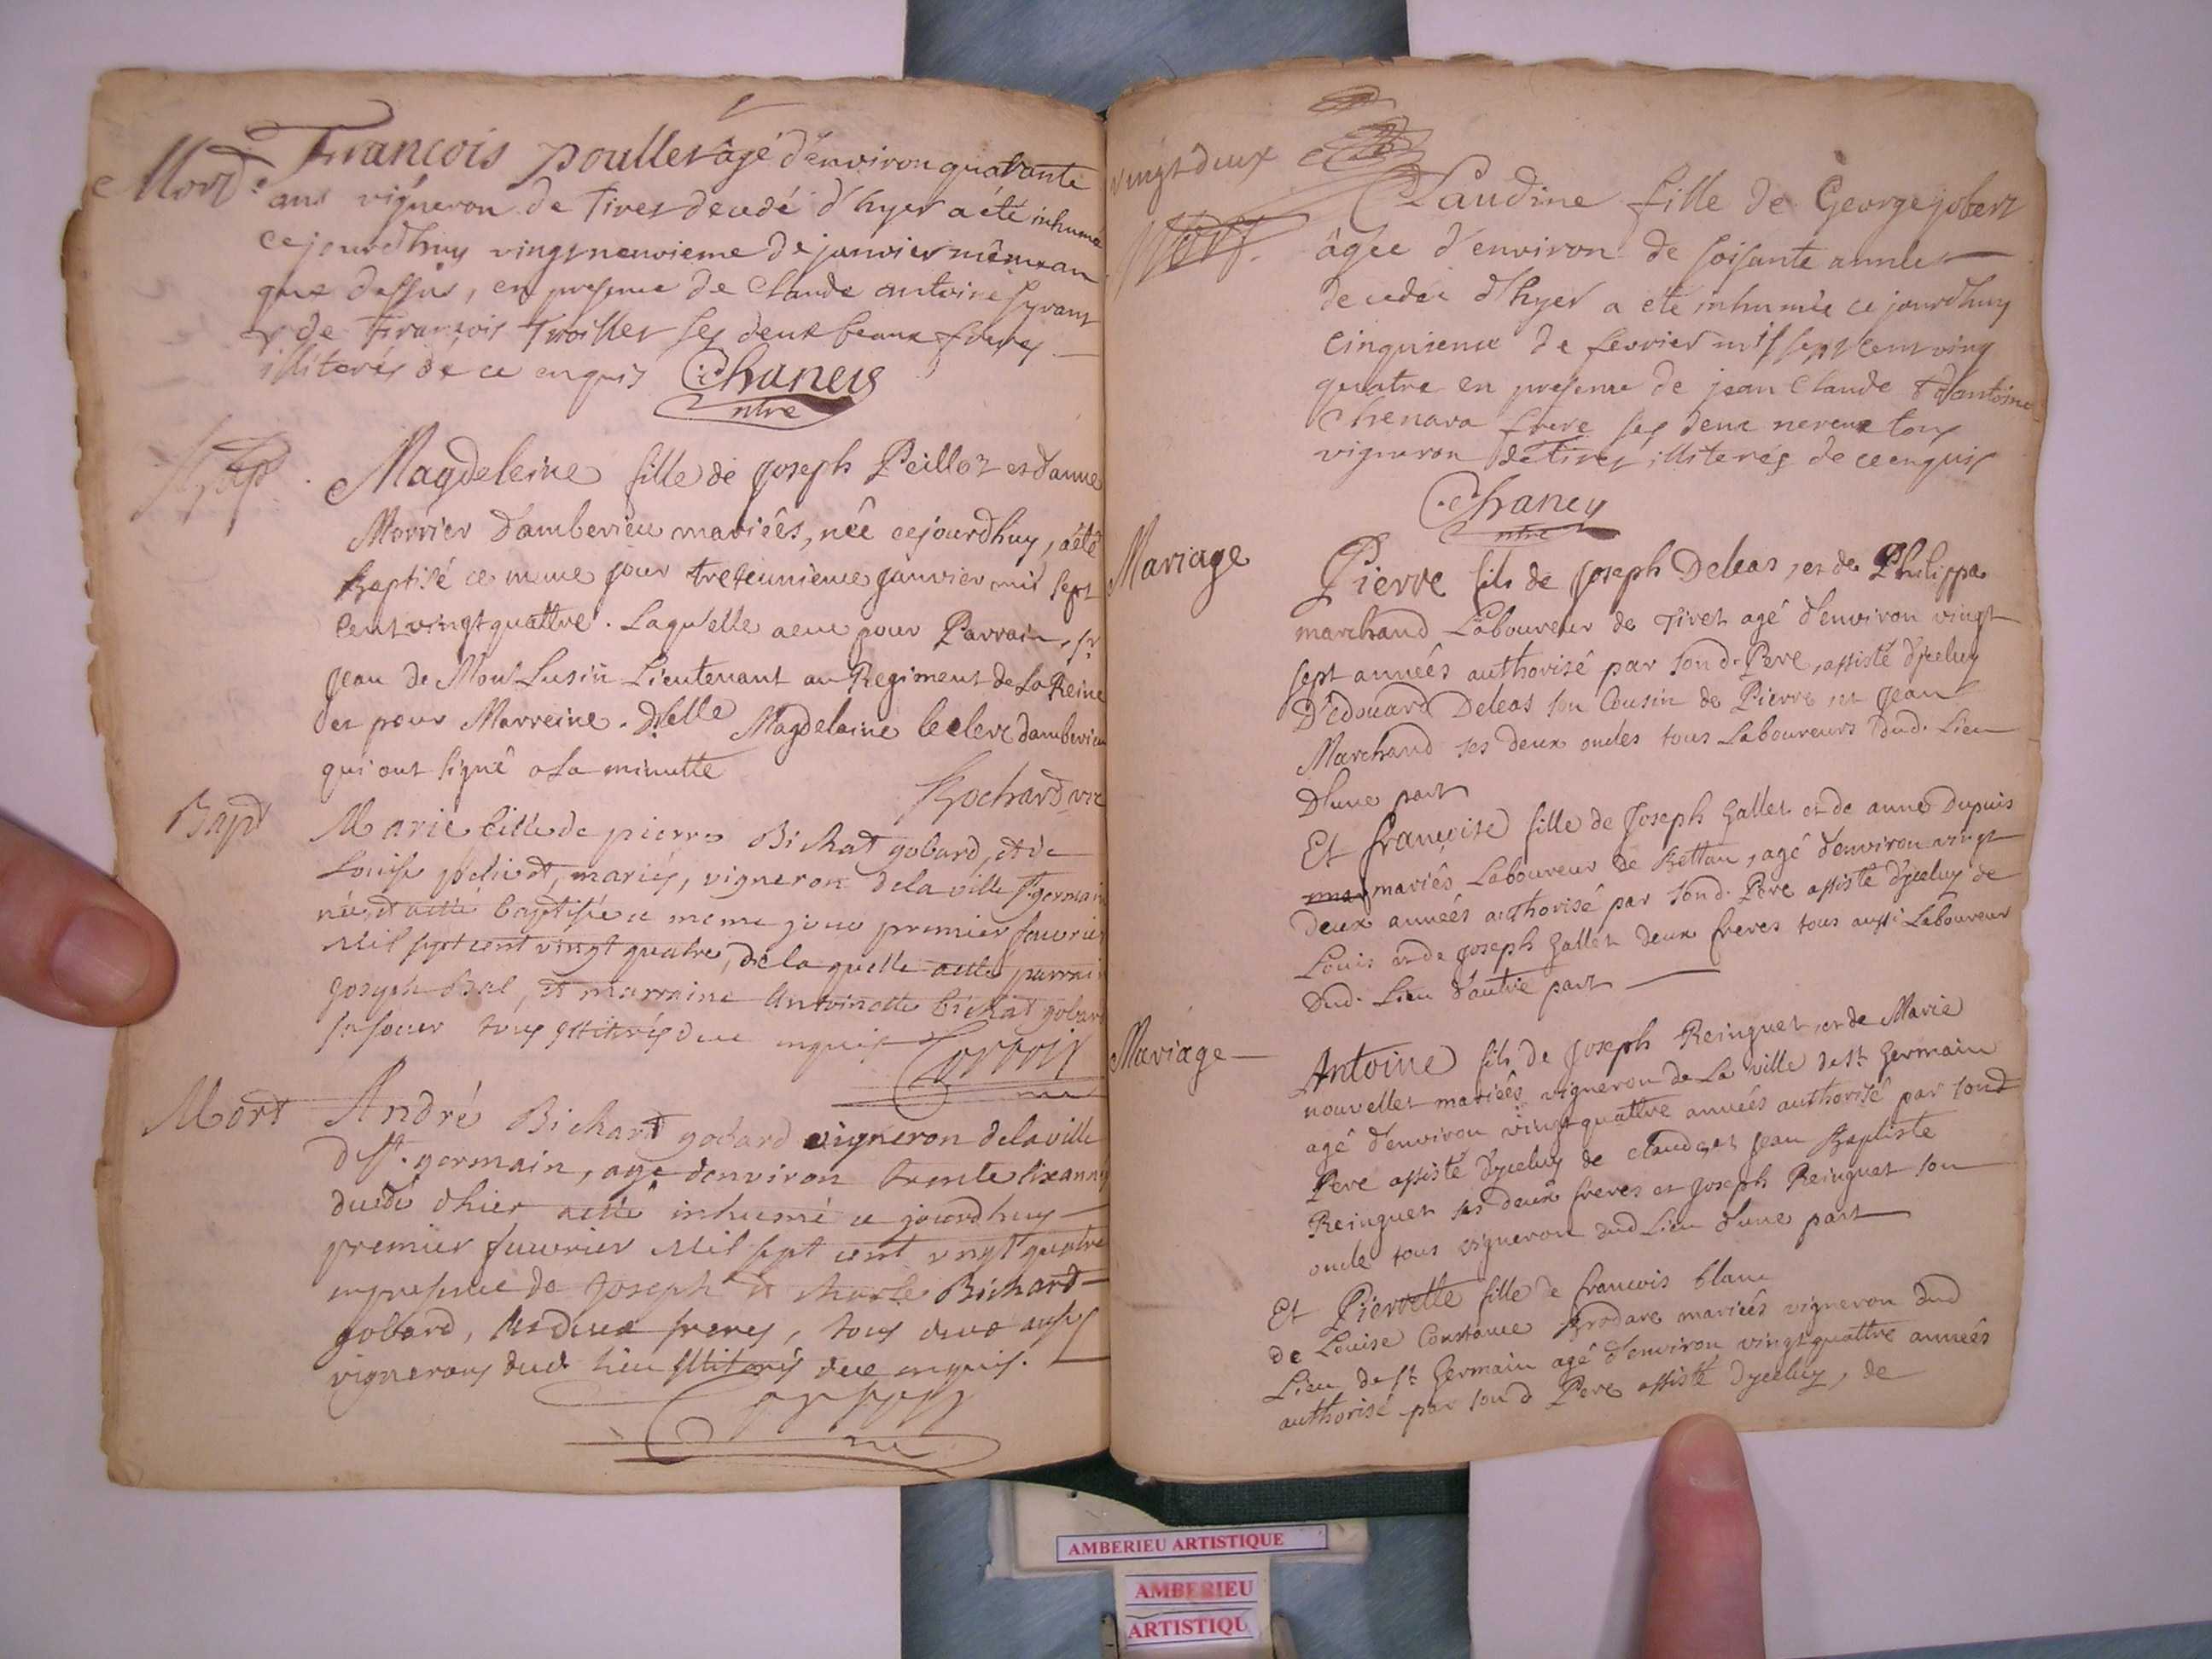 Mort
François poullet âgé d'environ quarante
ans vigneron de Tiret decedé d'hyer a été inhumé
cejourdhuy vingtneuvieme de janvier même an
que dessus, en presence de Claude antoine
& de François Troillet ses deux beaux freres
illiterés de ce enquis Chaney
Bapt
Magdeleine fille de Joseph Peillot et d'anne
Morrier d'amberieu mariéés, néé cejourdhuy, a été
Baptisé ce meme jour trenteunieme Janvier mil sept
Cent vingt quattre. Laquelle a eue pour Parrain, sr
Jean de Mon Lusin Lieutenant au Regiment de La Reine
et pour Marreine. Dlle Magdelaine leclerc damberieu
qui ont signé a la minutte
Bochard vic
Bapt
Marie fille de pierre Bichat gobard, et de
Louise, mariés, vigneron de la ville st germain
née, et a été baptisée ce meme jour premier fauvrier
Mil sept cent vingt quatre, de laquelle a été parrain
Joseph Bal, et marraine Antoinette bichat gobard
sa soeur tous illiterés de ce enquis
Mort
André Bichard gobard vigneron de la ville
de st. germain, age denviron trente six année
decedé dhier a été inhumé ce jourdhuy
premier fauvrier Mil sept cent vingt quatre
en presence de Joseph et charle Bichard
gobard, ses deux freres, tous deux aussy
vignerons dud lieu illiterés de ce enquis.
vingt deux
Mort
Claudine fille de George jobert
âgée d'environ de soisante années
decedée d'hyer a été inhumée ce jourdhuy
cinquieme de fevrier mil sept cent ving
quatre en presence de jean Claude & d'antoine
Chenava frere ses deux neveux tous
vigneron de Tiret illiterés de ce enquis
Chaney
Mariage
Pierre fils de Joseph Deleas, et de Philippa
marchand Laboureur de Tiret agé d'environ vingt
sept années authorisé par son d. Pere, assisté d'yceluy
D'édouard Deleas son Cousin de Pierre, et Jean
Marchand ses deux oncles tous Laboureurs dud. Lieu
D'une part
Et francoise fille de Joseph Gallet et de anne Dupuis
mariés Laboureur de Bettan, agé d'environ vingt
deux années authorisé par son d. Pere assisté d'yceluy de
Louis et de Joseph Gallet deux freres tous aussi Laboureur
dud. Lieu d'autre part
Mariage
Antoine fils de Joseph Reinguet, et de Marie
nouvellet mariéés vigneron de La ville de st Germain
agé d'environ vingt quattre années authorisé par son d
Pere assisté d'yceluy de claude, et Jean Baptiste
Reinguet ses deux freres et Joseph Reinguet son
oncle tous vigneron dud Lieu d'une part
Et Pierrette fille de francois blanc
de Louise Constance Brodare mariéés vigneron dud
Lieu de st Germain agé d'environ vingt quattre années
authorisé par son d Pere assisté d'yceluy, de
AMBERIEU ARTISTIQUE
AMBERIEU
ARTISTIQU